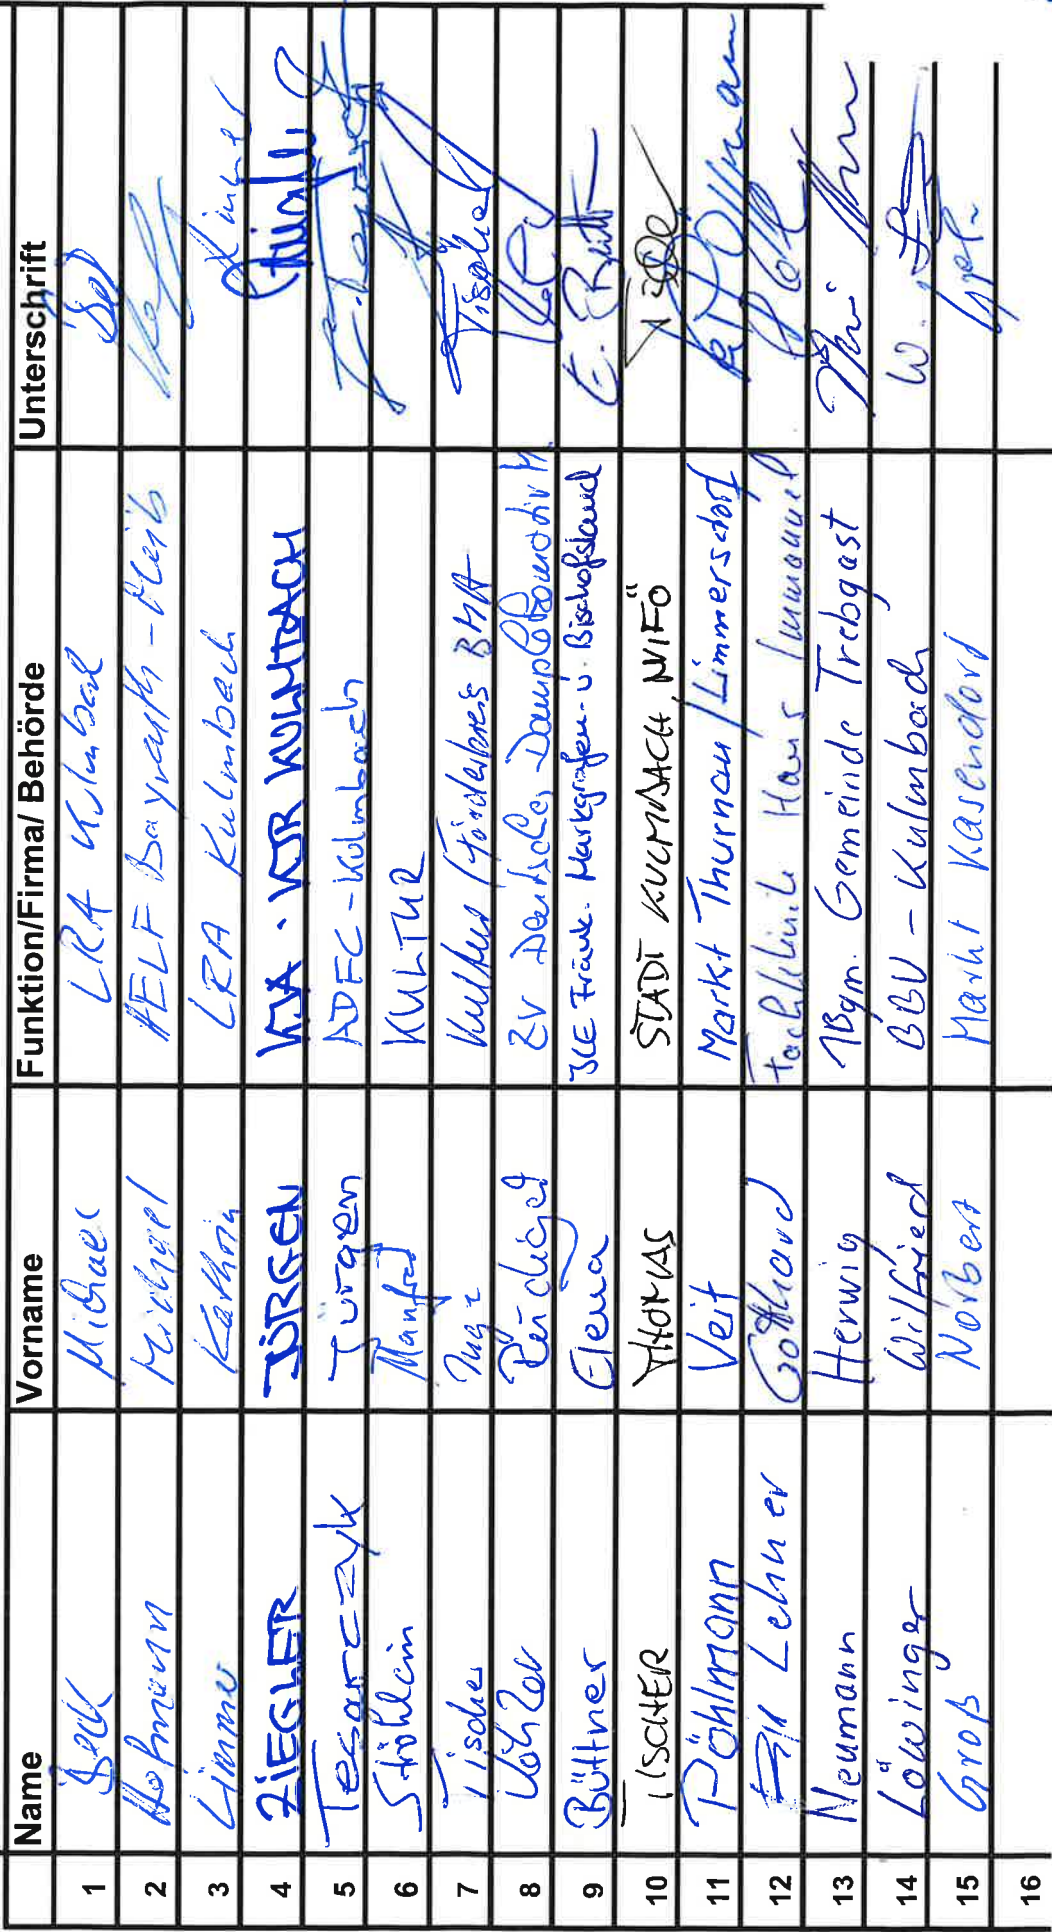 Name Vorname Funktion/Firma/ Behörde Unterschrift
1 Beck Michael LRA Kulmbach
2 Hofmann Michael AELF Bayreuth -
3 Limmer Kathrin LRA Kulmbach Limmer
4 ZIEGLER JÜRGEN KJR KULMBACH
5 Tesarczyk Jürgen ADFC-Kulmbach
6 Ströhlein Manfred KULTUR
7 Tischer Inge Kultur Förderkreis
8 Köhler ZV Deutsches Dampflokomotiv M.
9 Büttner Elena ILE Fränk. Markgrafen- u. Bischofsland E. Bütt
10 TISCHER THOMAS STADT KULMBACH, WIFÖ
11 Pöhlmann Veit Markt Thurnau / Limmersdorf Pöhlmann
12 Lehner Gotthard Fachklinik Haus Immanuel
13 Neumann Herwig 1Bgm. Gemeinde Trebgast
14 Löwinger Wilfried BBV - Kulmbach W.
15 Groß Norbert Markt Kasendorf
16